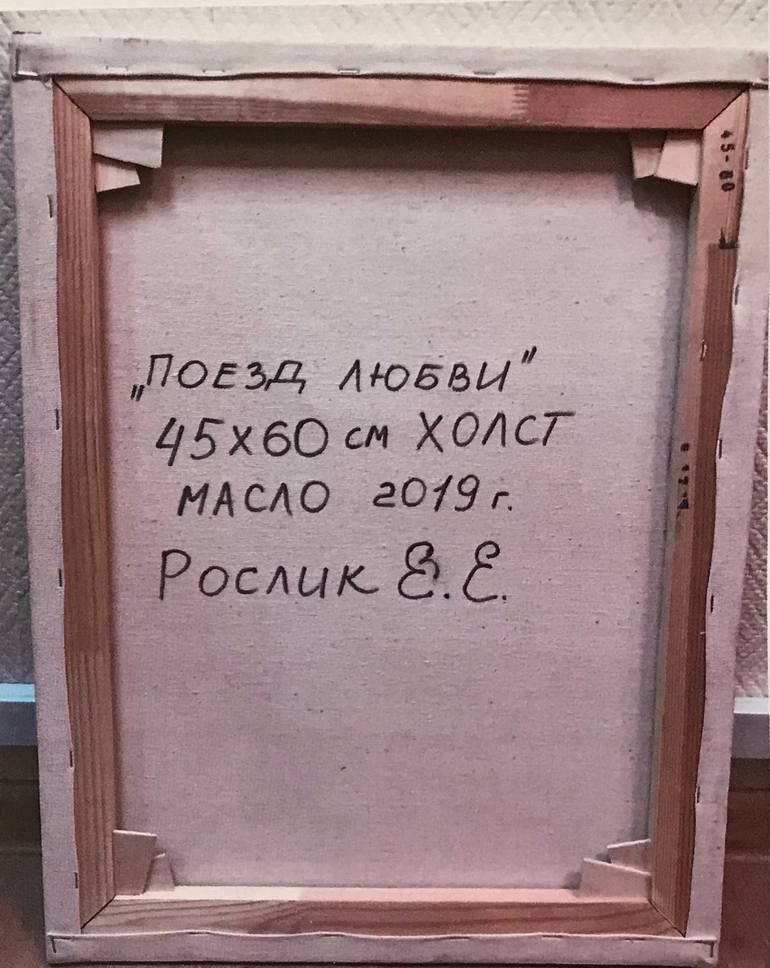 45-60
„ПОЕЗД ЛЮБВИ"
45х60 см ХОЛСТ
МАСЛО 2019 г.
Рослик Е.Е.